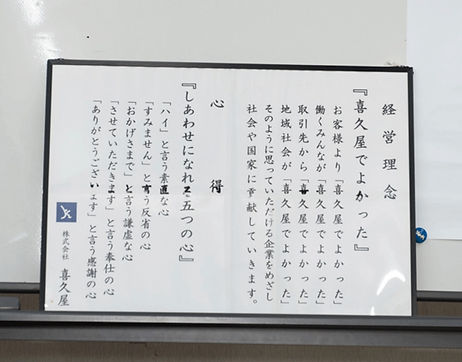 経営理念
『喜久屋でよかった』
お客様より「喜久屋でよかった」
働くみんなが「喜久屋でよかった」
取引先から「喜久屋でよかった」
地域社会が「喜久屋でよかった」
そのように思っていただける企業をめざし
社会や国家に貢献していきます。
心得
『しあわせになれる五つの心』
「ハイ」と言う素直な心
「すみません」と言う反省の心
「おかげさまで」と言う謙虚な心
「させていただきます」と言う奉仕の心
「ありがとうございます」と言う感謝の心
株式会社 喜久屋